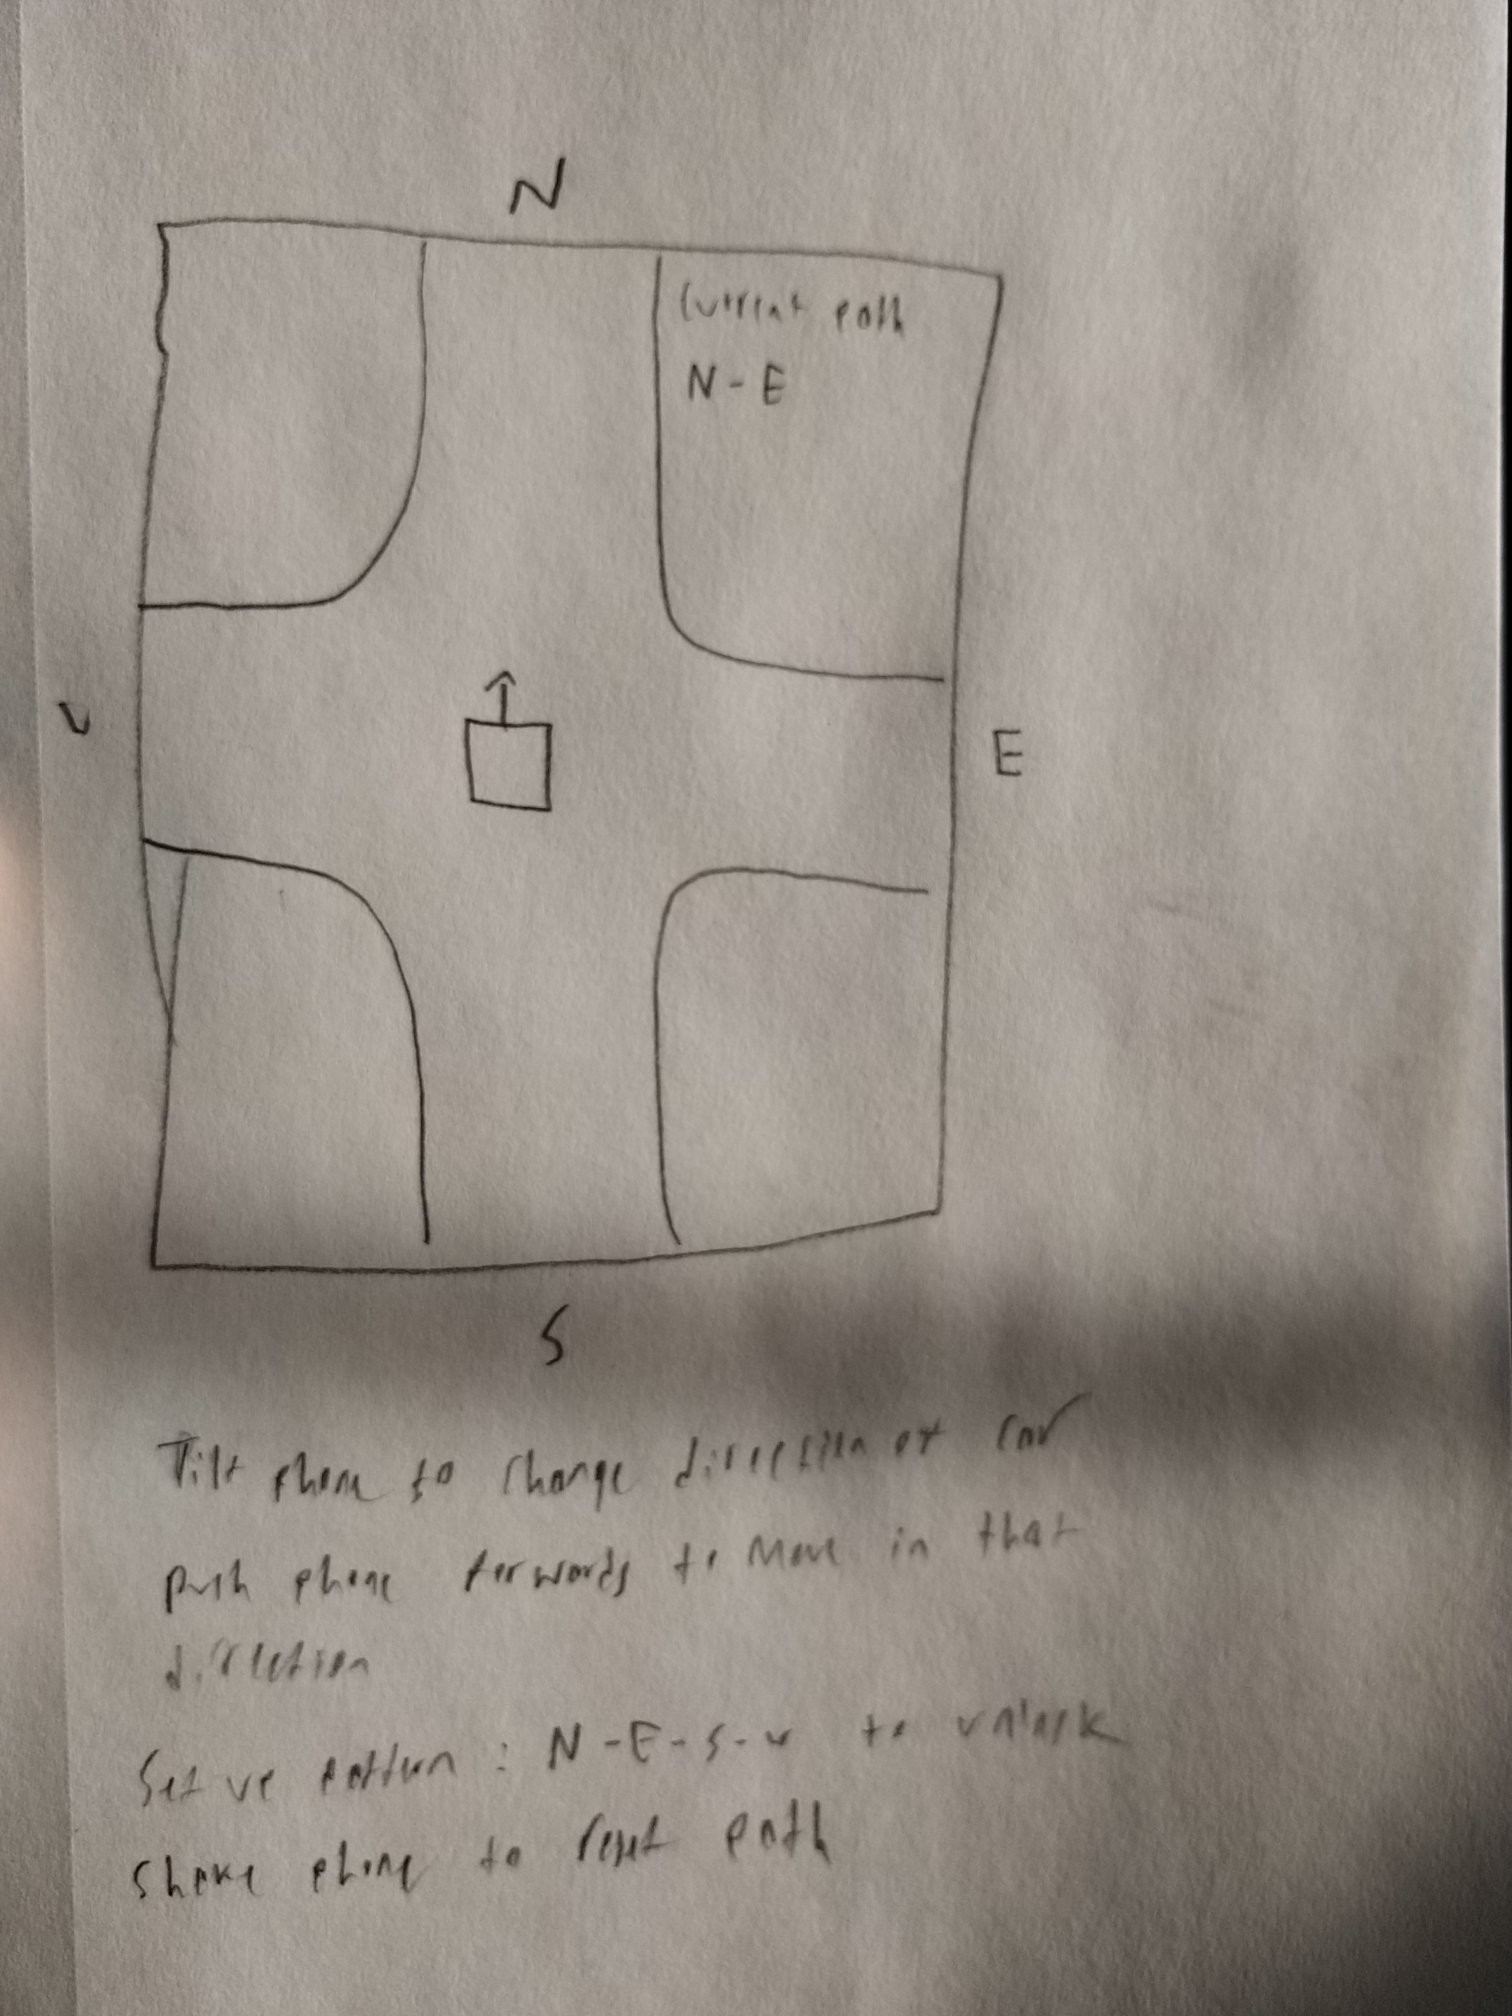 N
Current path
N - E
E
S
Tilt phone to change direction of car
push phone forwords to move in that
direction
Set up pattern : N - E - S - w to unlock
shake phone to reset path